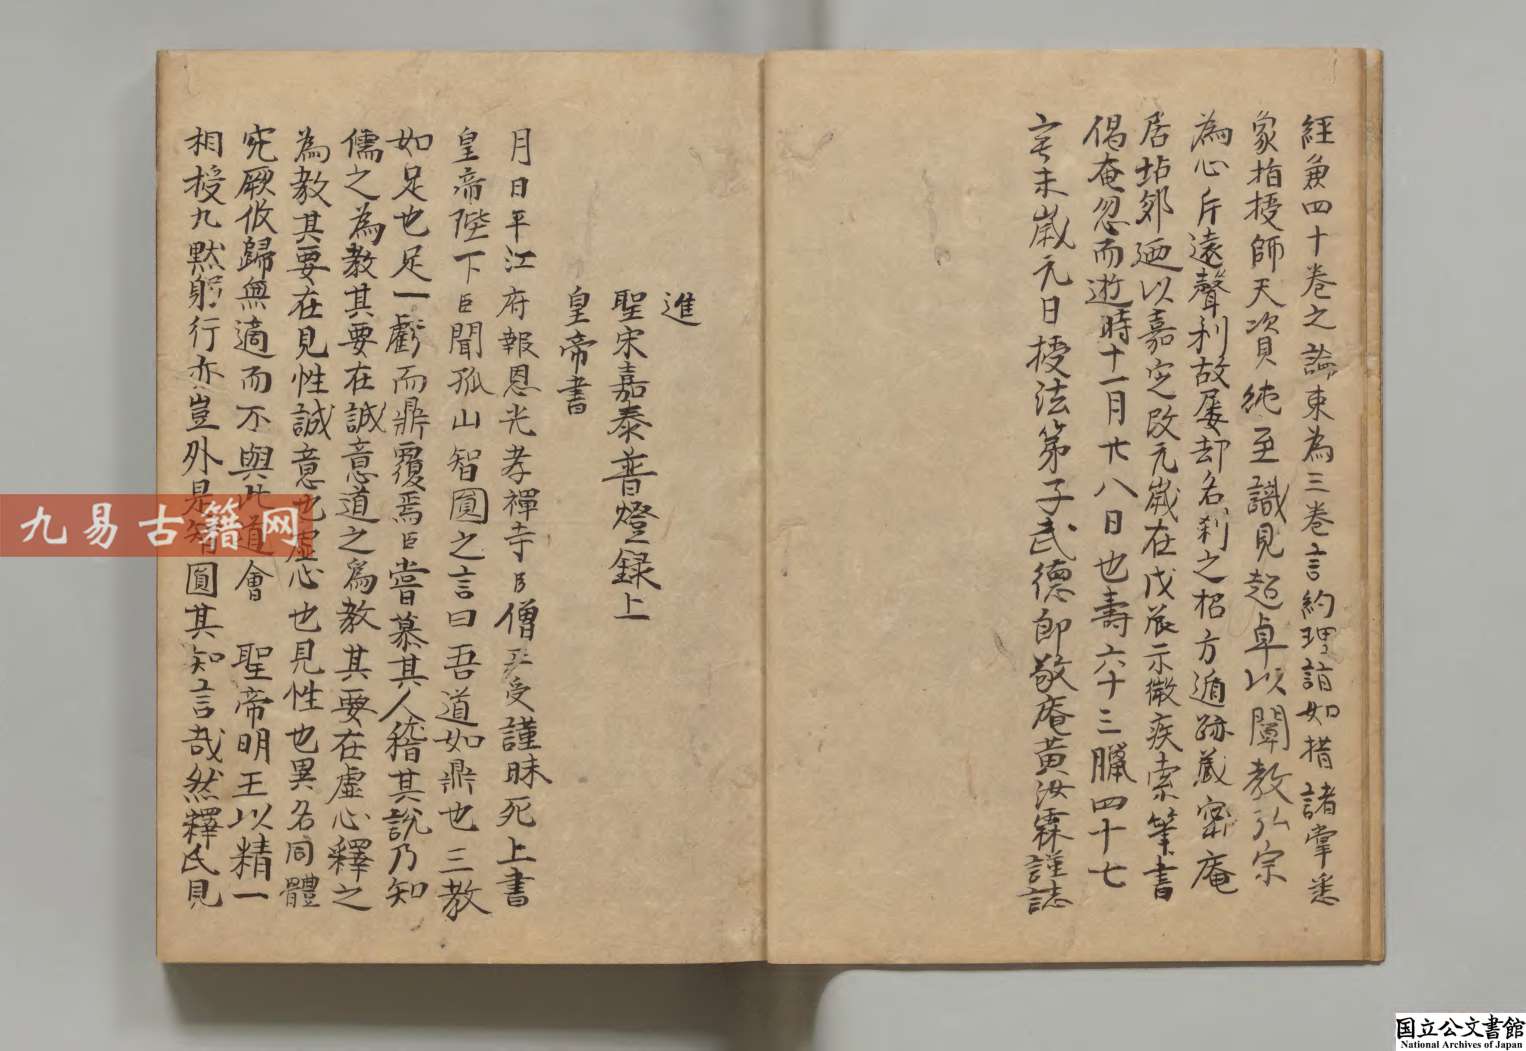 經兼四十卷之論束為三卷言約理詣如措諸掌悉
家指授師天資純至識見超卓以闡教弘宗
為心斥遠聲利故屢却名刹之招方遁跡藏密庵
居坫郊廼以嘉定改元歲在戊辰示微疾索筆書
偈奄忽而逝時十一月廿八日也壽六十三臘四十七
辛未歲元日授法第子武德郎敬庵黃汝霖謹誌
進
聖宋嘉泰普燈録上
皇帝書
月日平江府報恩光孝禪寺臣僧正受謹昧死上書
皇帝陛下臣聞孤山智圓之言曰吾道如鼎也三教
如足也足一虧而鼎覆焉臣嘗慕其人稽其說乃知
儒之為教其要在誠意道之為教其要在虛心釋之
為教其要在見性誠意也虛心也見性也異名同體
究厥攸歸無適而不與此道會 聖帝明王以精一
相授九默躬行亦豈外是智圓其知言哉然釋氏見
九易古籍网
国立公文書館
National Archives of Japan